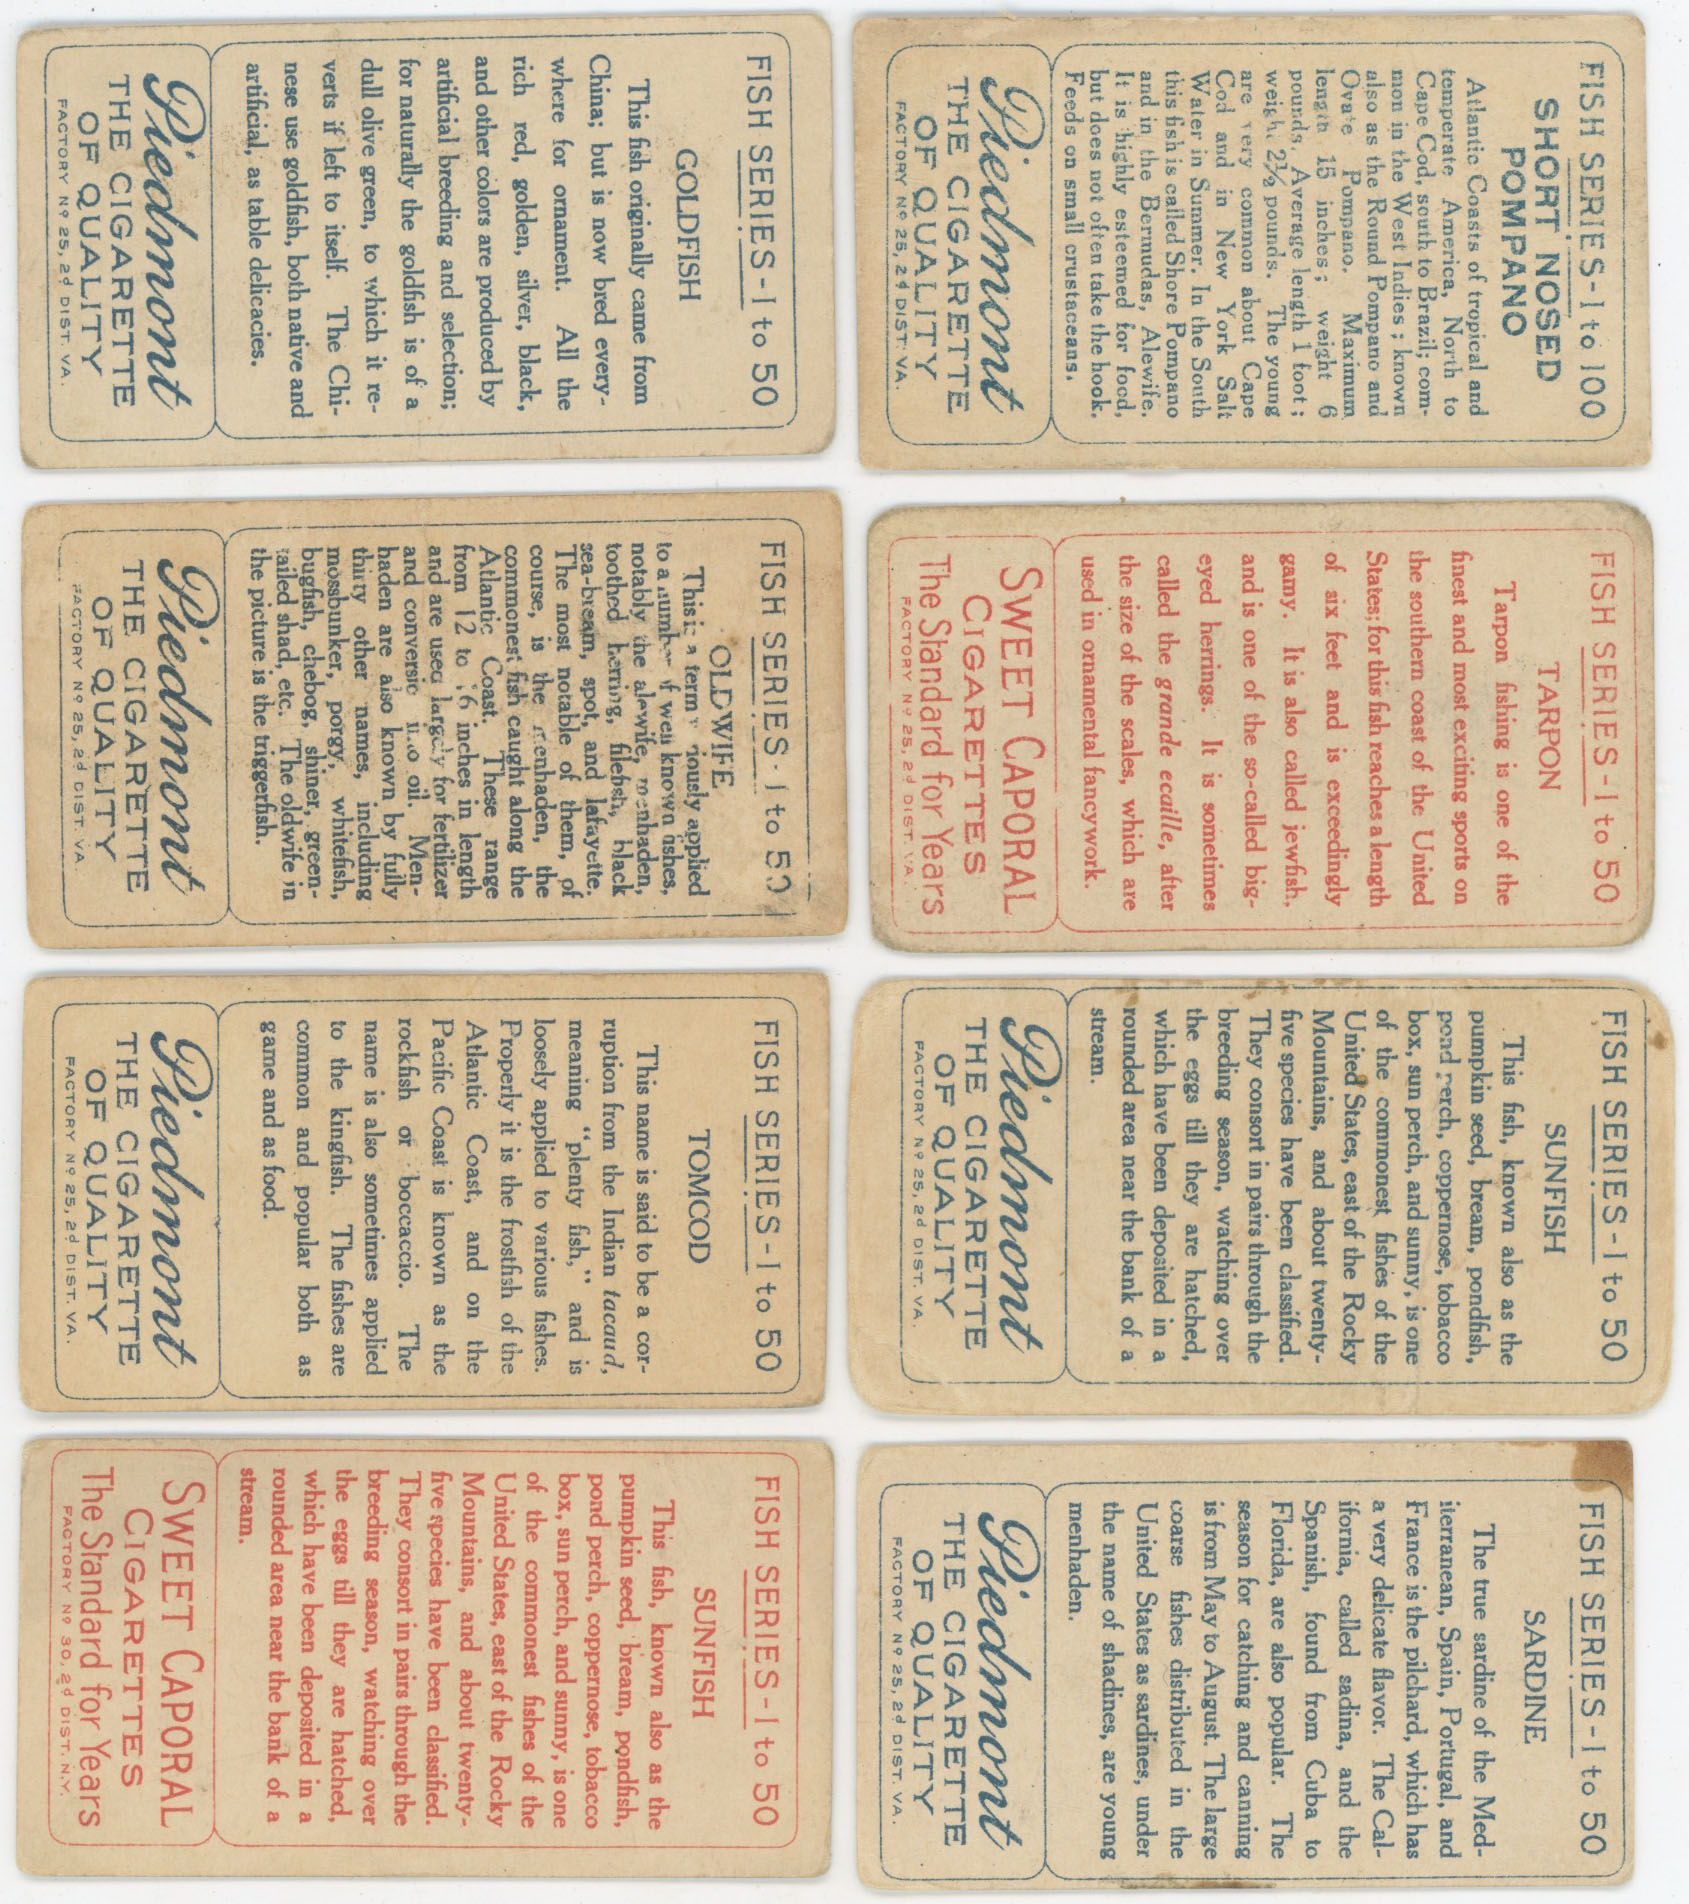 FISH SERIES - 1 to 50
GOLDFISH
This fish originally came from
China; but is now bred every-
where for ornament. All the
rich red, golden, silver, black,
and other colors are produced by
artificial breeding and selection;
for naturally the goldfish is of a
dull olive green, to which it re-
verts if left to itself. The Chi-
nese use goldfish, both native and
artificial, as table delicacies.
Piedmont
THE CIGARETTE
OF QUALITY
FACTORY Nº 25, 2d DIST. VA.
FISH SERIES - 1 to 100
SHORT NOSED
POMPANO
Atlantic Coasts of tropical and
temperate America, North to
Cape Cod, south to Brazil; com-
mon in the West Indies; known
also as the Round Pompano and
Ovate Pompano. Maximum
length 15 inches; weight 6
pounds. Average length 1 foot;
weight 2½ pounds. The young
are very common about Cape
Cod and in New York Salt
Water in Summer. In the South
this fish is called Shore Pompano
and in the Bermudas, Alewife.
It is highly esteemed for food,
but does not often take the hook.
Feeds on small crustaceans.
Piedmont
THE CIGARETTE
OF QUALITY
FACTORY Nº 25, 2d DIST. VA.
FISH SERIES - 1 to 50
OLDWIFE
This is a term variously applied
to a number of well known fishes,
notably the alewife, menhaden,
toothed herring, filefish, black
sea-bream, spot, and lafayette.
The most notable of them, of
course, is the menhaden, the
commonest fish caught along the
Atlantic Coast. These range
from 12 to 16 inches in length
and are used largely for fertilizer
and conversion into oil. Men-
haden are also known by fully
thirty other names, including
mossbunker, porgy, whitefish,
bugfish, chebog, shiner, green-
tailed shad, etc. The oldwife in
the picture is the triggerfish.
Piedmont
THE CIGARETTE
OF QUALITY
FACTORY Nº 25, 2d DIST. VA.
FISH SERIES - 1 to 50
TARPON
Tarpon fishing is one of the
finest and most exciting sports on
the southern coast of the United
States; for this fish reaches a length
of six feet and is exceedingly
gamy. It is also called jewfish,
and is one of the so-called big-
eyed herrings. It is sometimes
called the grande ecaille, after
the size of the scales, which are
used in ornamental fancywork.
SWEET CAPORAL
CIGARETTES
The Standard for Years
FACTORY Nº 25, 2d DIST. VA.
FISH SERIES - 1 to 50
TOMCOD
This name is said to be a cor-
ruption from the Indian tacaud,
meaning "plenty fish," and is
loosely applied to various fishes.
Properly it is the frostfish of the
Atlantic Coast, and on the
Pacific Coast is known as the
rockfish or boccaccio. The
name is also sometimes applied
to the kingfish. The fishes are
common and popular both as
game and as food.
Piedmont
THE CIGARETTE
OF QUALITY
FACTORY Nº 25, 2d DIST. VA.
FISH SERIES - 1 to 50
SUNFISH
This fish, known also as the
pumpkin seed, bream, pondfish,
pond perch, coppernose, tobacco
box, sun perch, and sunny, is one
of the commonest fishes of the
United States, east of the Rocky
Mountains, and about twenty-
five species have been classified.
They consort in pairs through the
breeding season, watching over
the eggs till they are hatched,
which have been deposited in a
rounded area near the bank of a
stream.
Piedmont
THE CIGARETTE
OF QUALITY
FACTORY Nº 25, 2d DIST. VA.
FISH SERIES - 1 to 50
SUNFISH
This fish, known also as the
pumpkin seed, bream, pondfish,
pond perch, coppernose, tobacco
box, sun perch, and sunny, is one
of the commonest fishes of the
United States, east of the Rocky
Mountains, and about twenty-
five species have been classified.
They consort in pairs through the
breeding season, watching over
the eggs till they are hatched,
which have been deposited in a
rounded area near the bank of a
stream.
SWEET CAPORAL
CIGARETTES
The Standard for Years
FACTORY Nº 30, 2d DIST. N.Y.
FISH SERIES - 1 to 50
SARDINE
The true sardine of the Med-
iterranean, Spain, Portugal, and
France is the pilchard, which has
a very delicate flavor. The Cal-
ifornia, called sadina, and the
Spanish, found from Cuba to
Florida, are also popular. The
season for catching and canning
is from May to August. The large
coarse fishes distributed in the
United States as sardines, under
the name of shadines, are young
menhaden.
Piedmont
THE CIGARETTE
OF QUALITY
FACTORY Nº 25, 2d DIST. VA.